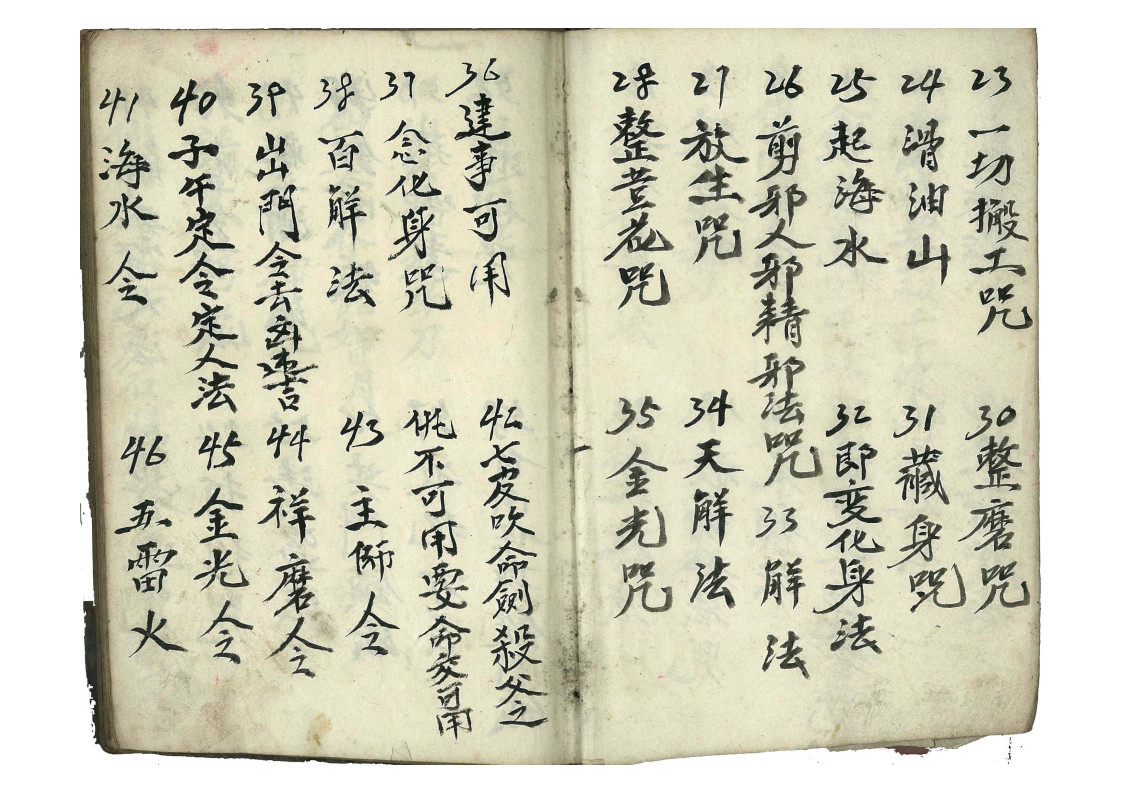 23 一切搬工咒
24 滑油山
25 起海水
26 剪邪人邪精邪法咒
27 放生咒
28 整荳花咒
30 整磨咒
31 藏身咒
32 即变化身法
33 解法
34 天解法
35 金光咒
36 建事可用
37 念化身咒
38 百解法
39 出門令去凶
40 子午定令定人法
41 海水令
42 七吹命劍殺父之
不可用要命交可用
43 主師令
44 祥磨令
45 金光令
46 五雷火